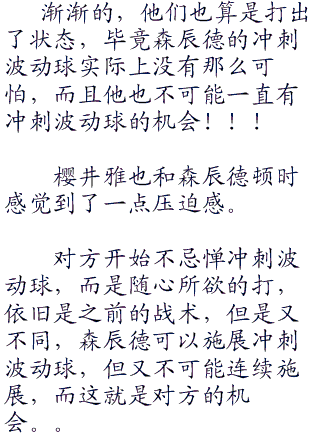 渐渐的，他们也算是打出
了状态，毕竟森辰德的冲刺
波动球实际上没有那么可
怕，而且他也不可能一直有
冲刺波动球的机会！！！
樱井雅也和森辰德顿时
感觉到了一点压迫感。
对方开始不忌惮冲刺波
动球，而是随心所欲的打，
依旧是之前的战术，但是又
不同，森辰德可以施展冲刺
波动球，但又不可能连续施
展，而这就是对方的机
会。。